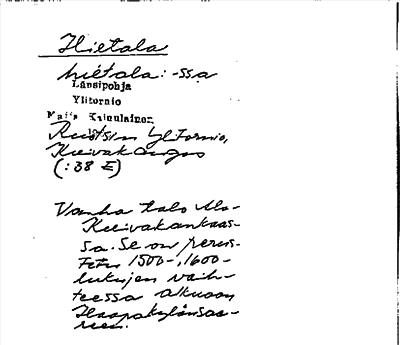 Hietala
hietala: -ssa
Länsipohja
Ylitornio
Maija Kainulainen
Ruotsin Ylitornio,
Kuivakangas
(:38 E)
Vanha talo Ala-
Kuivakankaas-
sa. Se on perus-
tettu 1500-, 1600-
lukujen vaih-
teessa alkuaan
Haapakylänsaa-
reen.